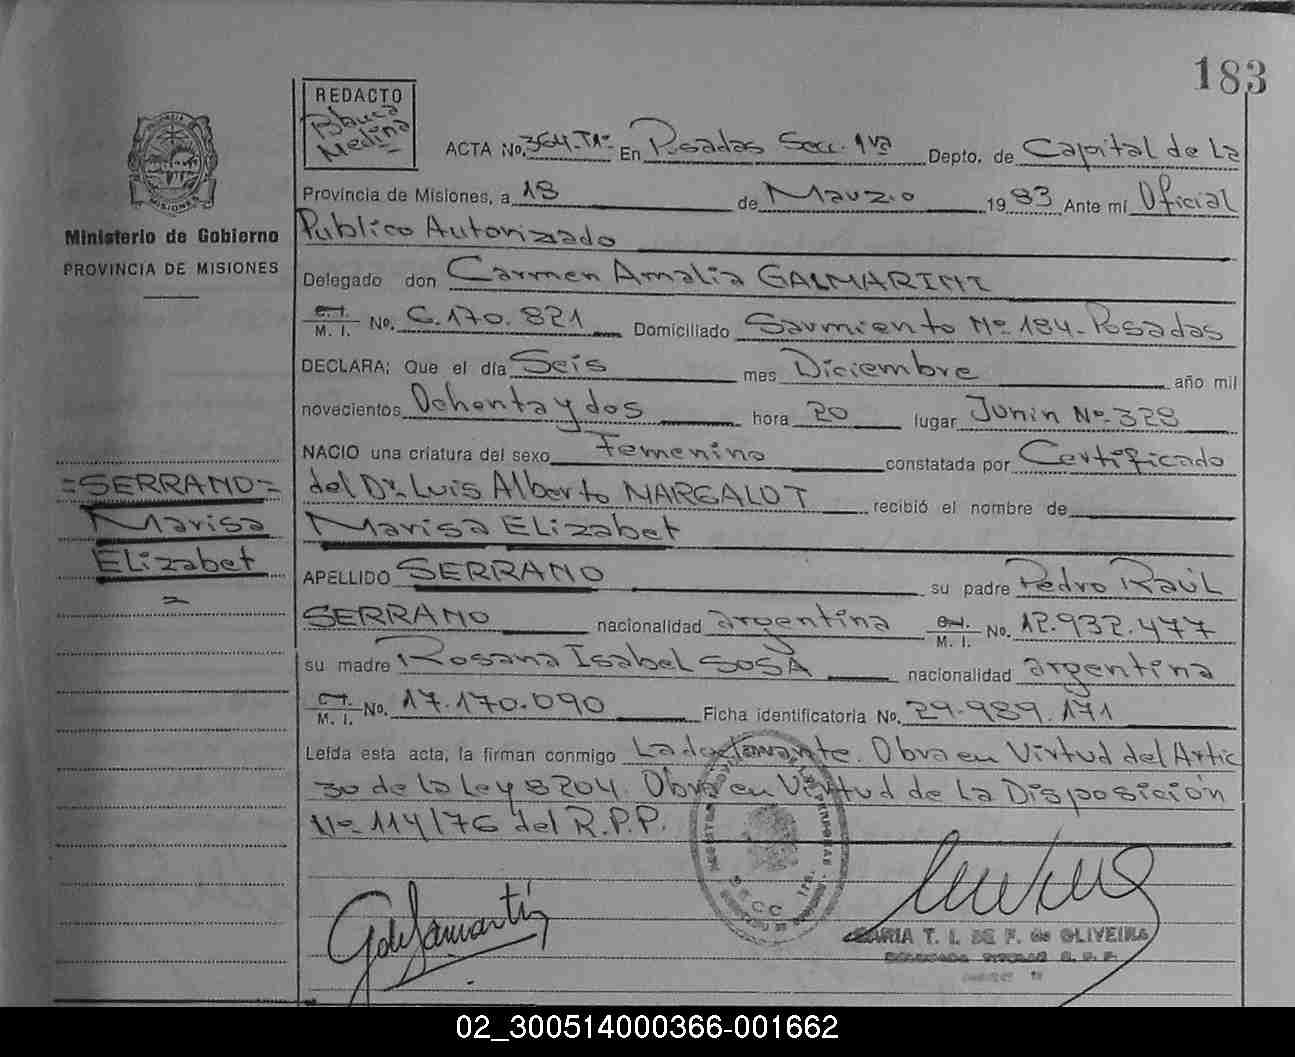 183
REDACTO
Blanca
Medina
ACTA No. 364-Tº1º En Posadas Secc. 1va Depto. de Capital de La
Provincia de Misiones, a 18 de Marzo 1983 Ante mí Oficial
Ministerio de Gobierno
PROVINCIA DE MISIONES
Publico Autorizado
Delegado don Carmen Amalia GALMARINI
C. I.
M. I. No. 6.170.821 Domiciliado Sarmiento Nº 184-Posadas
DECLARA: Que el día Seis mes Diciembre año mil
novecientos Ochenta y dos hora 20 lugar Junin Nº-328
NACIO una criatura del sexo Femenino constatada por Certificado
del Dr. Luis Alberto MARGALOT recibió el nombre de
Marisa Elizabet
=SERRANO=
Marisa
Elizabet
APELLIDO SERRANO su padre Pedro Raúl
SERRANO nacionalidad argentina C. I.
M. I. No. 12.932.477
su madre Rosana Isabel SOSA nacionalidad argentina
C. I.
M. I. No. 17.170.090 Ficha identificatoria No. 29.989.171
Leída esta acta, la firman conmigo La declarante. Obra en Virtud del Artic
30 de la Ley 8204. Obra en Virtud de La Disposición
Nº 114/76 del R.P.P.
MARIA T. I. DE F. de OLIVEIRA
02_300514000366-001662